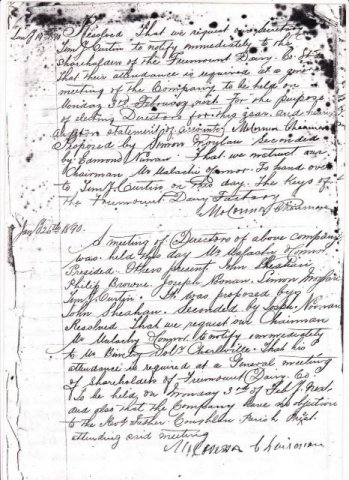 Resolved That we request our Secretary
Tim J Curtin to notify immediately to the
Shareholders of the Freemount Dairy Co
That their attendance is required at a
meeting of the Company to be held on
Monday 3rd February next for the purpose
of electing Directors for this year and
statement of accounts M Connor Chairman
Proposed by Simon Moylan Seconded
by Edmond Noonan That we instruct our
Chairman Mr Malachi Connor To hand over
to Tim J Curtin on this day The Keys of
the Freemount Dairy Factory
M Connor Chairman
Jany 26th 1890
A meeting of Directors of above company
was held this day Mr Malachy Connor
Presided. Others present John Sheahan
Philip Browne, Joseph Noonan, Simon Moylan
Tim J. Curtin. It was proposed by
John Sheahan. Seconded by Joseph Noonan
Resolved That we request our Chairman
Mr Malachy Connor to notify immediately
to Mr Solr Charleville. That his
attendance is required at a General meeting
of Shareholders of Freemount Dairy Co
To be held on Monday 3rd of Feby Next
and also that the Company have no objection
to the Revd Father Coughlan Parish Priest
attending said meeting
M Connor Chairman